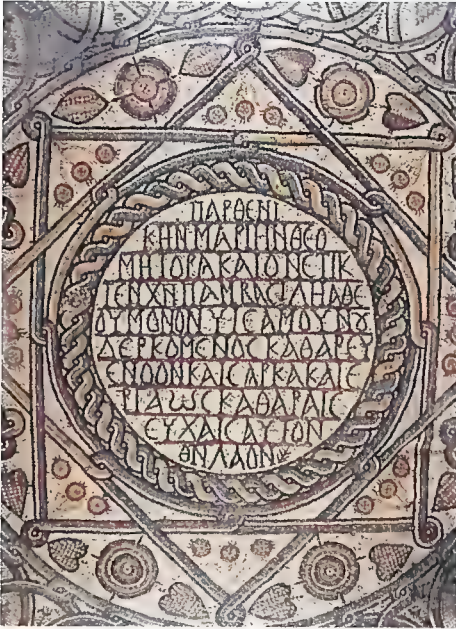 ΠΑΡΘΕΝΙ
ΚΗΝΜΑΡΙΗΝΘΕΟ
ΜΗΤΟΡΑΚΑΙΟΝΕΤΙΚ
ΤΕΝΧΝΠΑΝΒΑCΙΛΗΑΘΕ
ΟΥΜΟΝΟΝΥΙΕΑΜΟΥΝȢ
ΔΕΡΚΟΜΕΝΟCΚΑΘΑΡΕΥ
ΕΝΟΟΝΚΑΙCΑΡΚΑΚΑΙΕ
ΡΓΑΩCΚΑΘΑΡΑΙC
ΕΥΧΑΙCΑΥΤΟΝ
ΘΝΛΑΟΝ